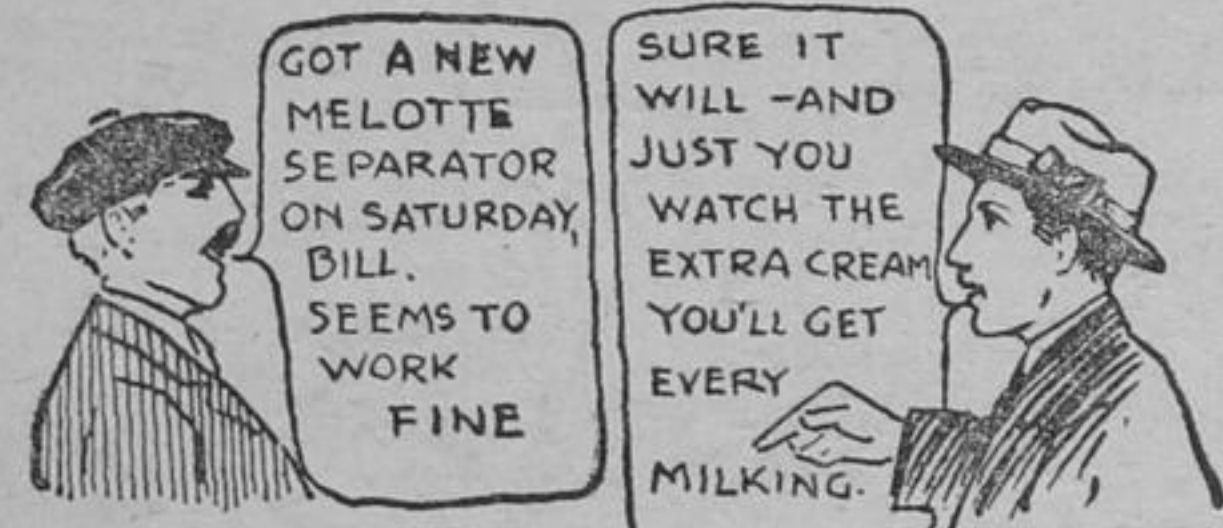 GOT A NEW
MELOTTE
SEPARATOR
ON SATURDAY,
BILL.
SEEMS TO
WORK
FINE
SURE IT
WILL -AND
JUST YOU
WATCH THE
EXTRA CREAM
YOU'LL GET
EVERY
MILKING.